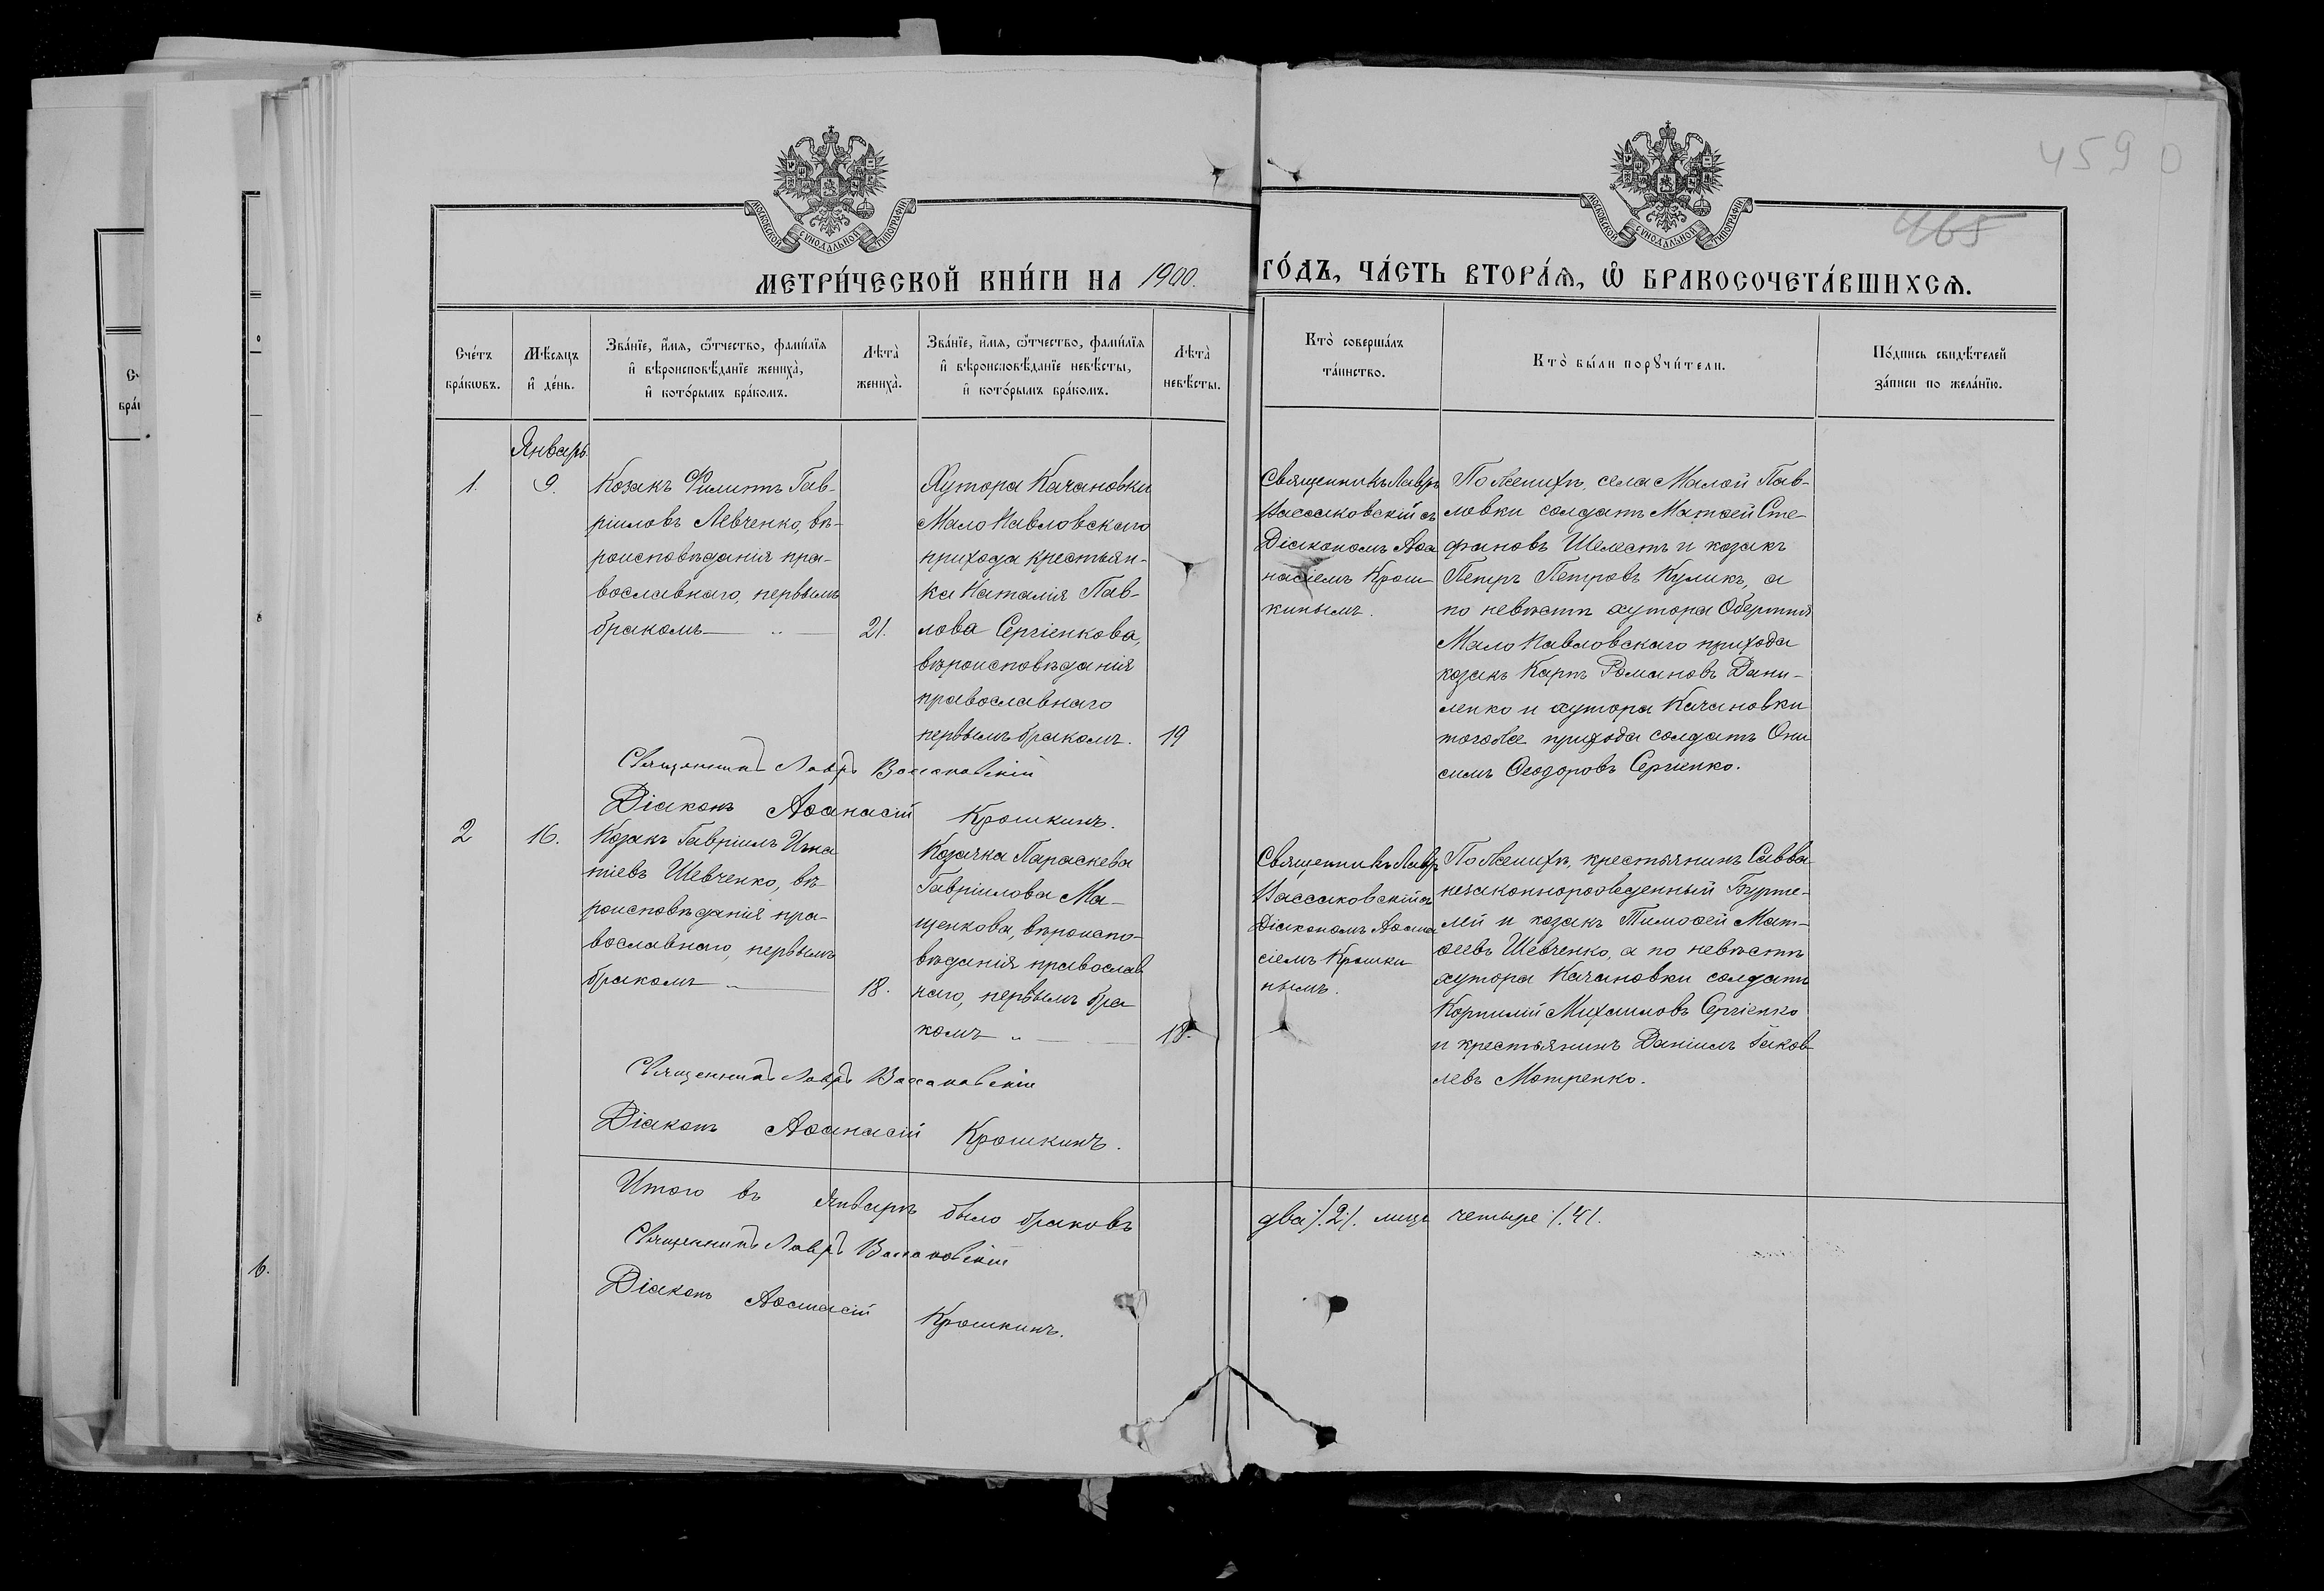 4590
465
МОСКОВСКОЙ СѴНОДАЛЬНОЙ ТИПОГРАФІИ
МОСКОВСКОЙ СѴНОДАЛЬНОЙ ТИПОГРАФІИ
МЕТРИ́ЧЕСКОЙ КНИ́ГИ НА 1900. ГО́ДЪ, ЧА́СТЬ ВТОРА́Ѧ, Ѽ БРАКОСОЧЕТА́ВШИХСѦ.
Сче́тъ
бра́кωвъ.
Мѣ́сяцъ
и҆ де́нь.
Зва́нїе, и҆́мя, ѻ҆́тчество, фами́лїя
и҆ вѣроисповѣ́данїе жениха̀,
и҆ кото́рымъ бра́комъ.
Лѣта̀
жениха̀.
Зва́нїе, и҆́мя, ѻ҆́тчество, фами́лїя
и҆ вѣроисповѣ́данїе невѣ́сты,
и҆ кото́рымъ бра́комъ.
Лѣта̀
невѣ́сты.
Кто̀ соверша́лъ
та́инство.
Кто̀ бы́ли порꙋчи́тели.
По́дпись свидѣ́телей
за́писи по жела́нїю.
Январь
1.
9.
Козакъ Филиппъ Гав-
ріиловъ Левченко, вѣ-
роисповѣданія пра-
вославнаго, первымъ
бракомъ
21.
Хутора Качановки
Мало Павловскаго
прихода крестьян-
ка Наталія Пав-
лова Сергіенкова,
вѣроисповѣданія
православнаго
первымъ бракомъ.
19
Священникъ Лавръ
Вассаковскій съ
Діакономъ Аѳа
насіемъ Крош-
кинымъ.
По женихѣ, села Малой Пав-
ловки солдатъ Матѳей Сте-
фановъ Шелестъ и козакъ
Петръ Петровъ Куликъ, а
по невѣстѣ хутора Обертня
Мало Павловскаго прихода
козакъ Карпъ Романовъ Дани-
ленко и хутора Качановки
тогоже прихода солдатъ Они
симъ Ѳеодоровъ Сергіенко.
Священникъ Лавръ Вассаковскій
Діаконъ Аѳанасій Крошкинъ.
2
16.
Козакъ Гавріилъ Игна
тіевъ Шевченко, вѣ-
роисповѣданія пра-
вославнаго, первымъ
бракомъ
18.
Козачка Параскева
Гавріилова Ма-
щенкова, вѣроиспо-
вѣданія православ
наго, первымъ бра
комъ
18.
Священникъ Лавръ
Вассаковскій съ
Діакономъ Аѳана
сіемъ Крошки
нымъ.
По женихѣ, крестьянинъ Савва
незаконнорожденный Бурте-
лей и козакъ Тимоѳей Мат-
ѳеевъ Шевченко, а по невѣстѣ
хутора Качановки солдатъ
Корнилій Михаиловъ Сергіенко
и крестьянинъ Даніилъ Іаков-
левъ Мотренко.
Священникъ Лавръ Вассаковскій
Діаконъ Аѳанасій Крошкинъ.
Итого въ Январѣ было браковъ два /.2/. лицъ четыре /.4/.
Священникъ Лавръ Вассаковскій
Діаконъ Аѳанасій Крошкинъ.
6.